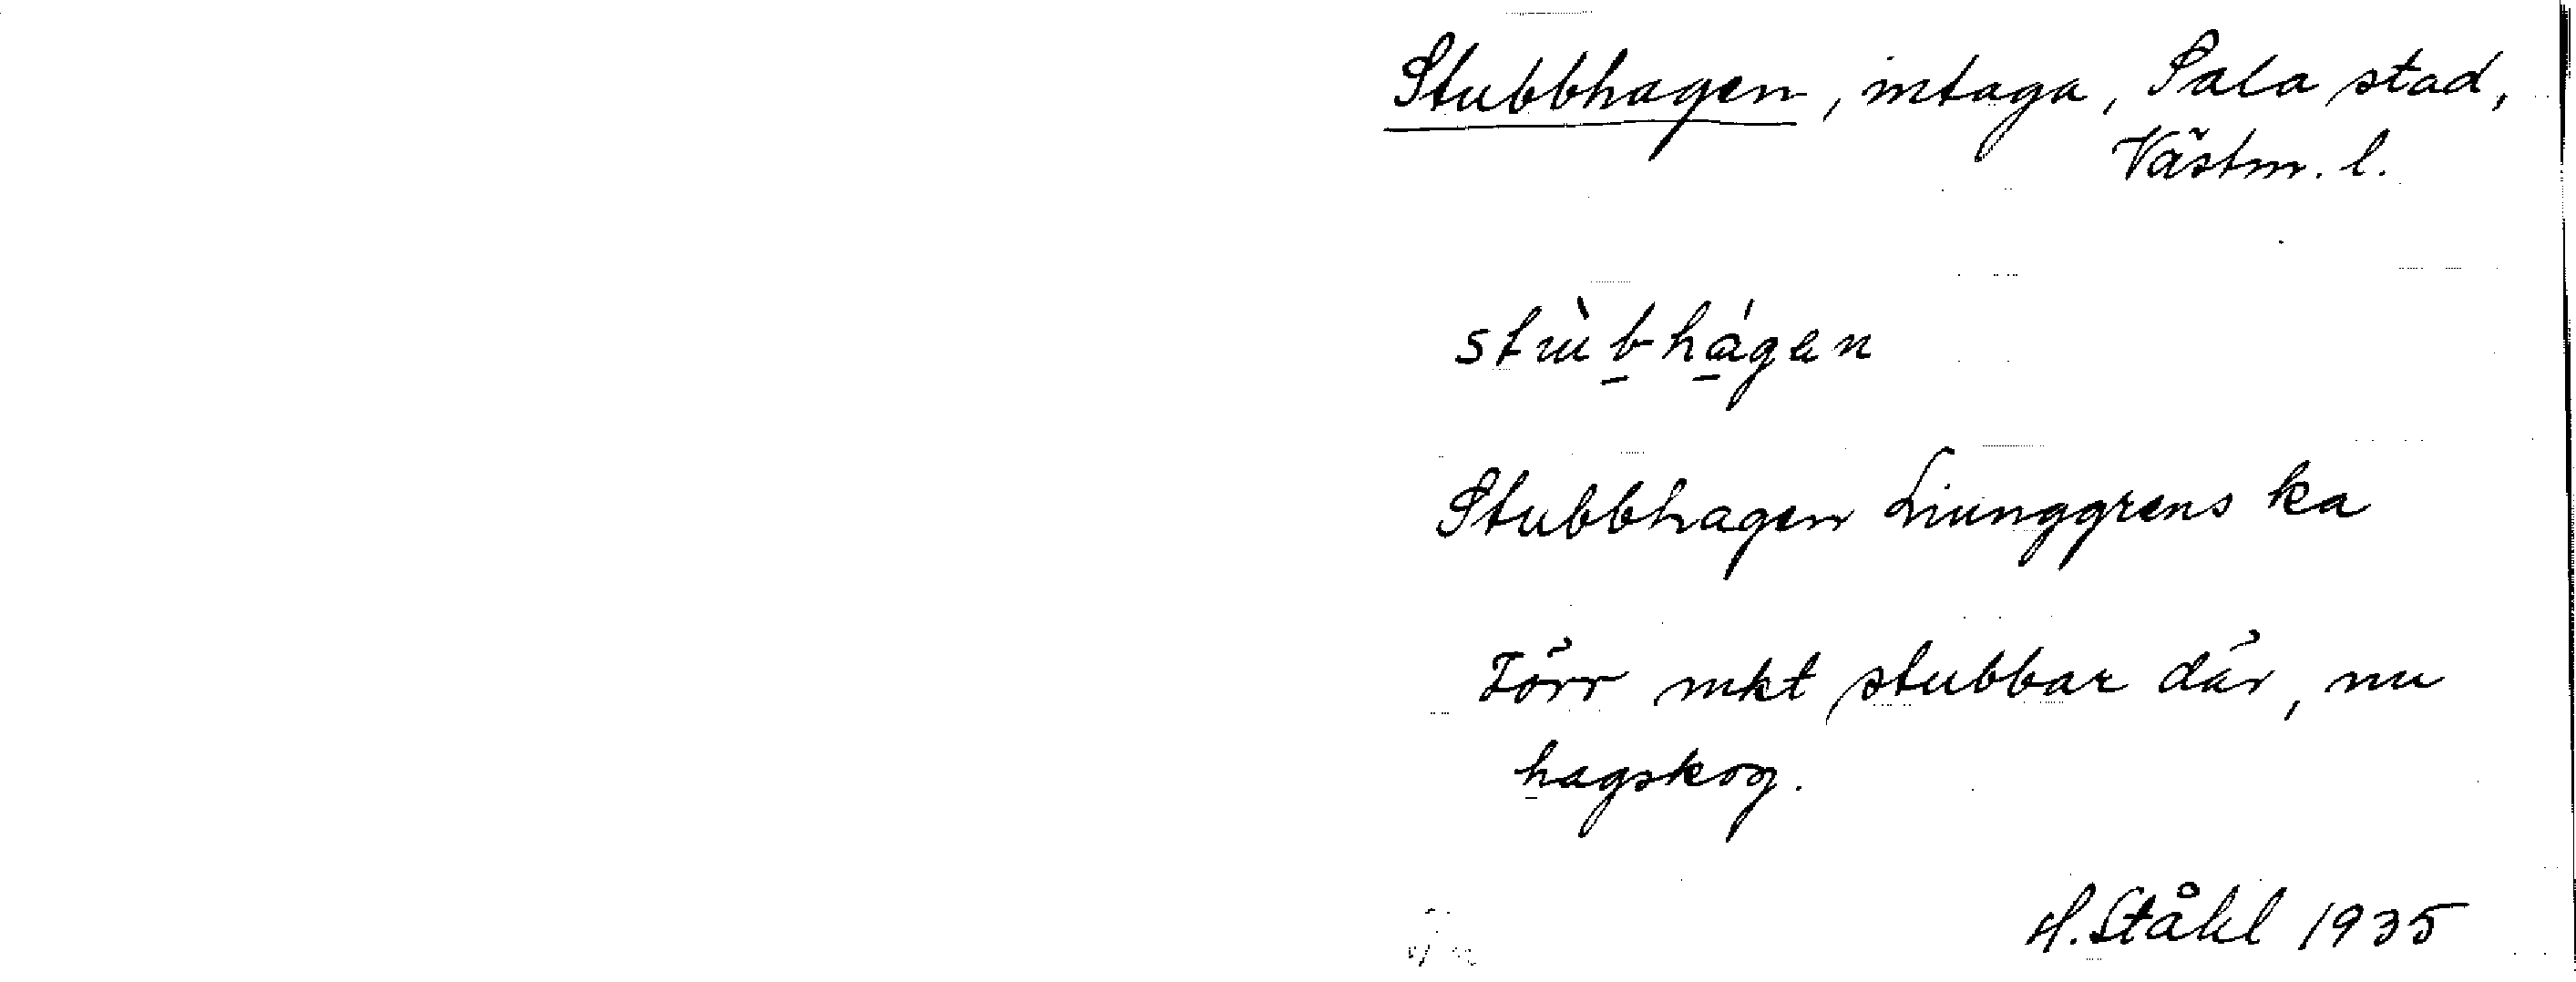 Stubbhagen, intaga, Sala stad,
Västm. l.
stùbhágen
Stubbhagen Liunggrens ka
Förr mkt stubbar där, nu
hagskog.
H. Ståhl 1935